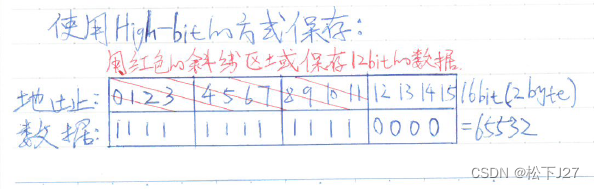 使用High-bit的方式保存:
用红色的斜线区域保存12bit的数据
地址: 0 1 2 3 4 5 6 7 8 9 10 11 12 13 14 15 16bit(2byte)
数据: 1 1 1 1 1 1 1 1 1 1 1 1 0 0 0 0 =65532
CSDN @松下J27